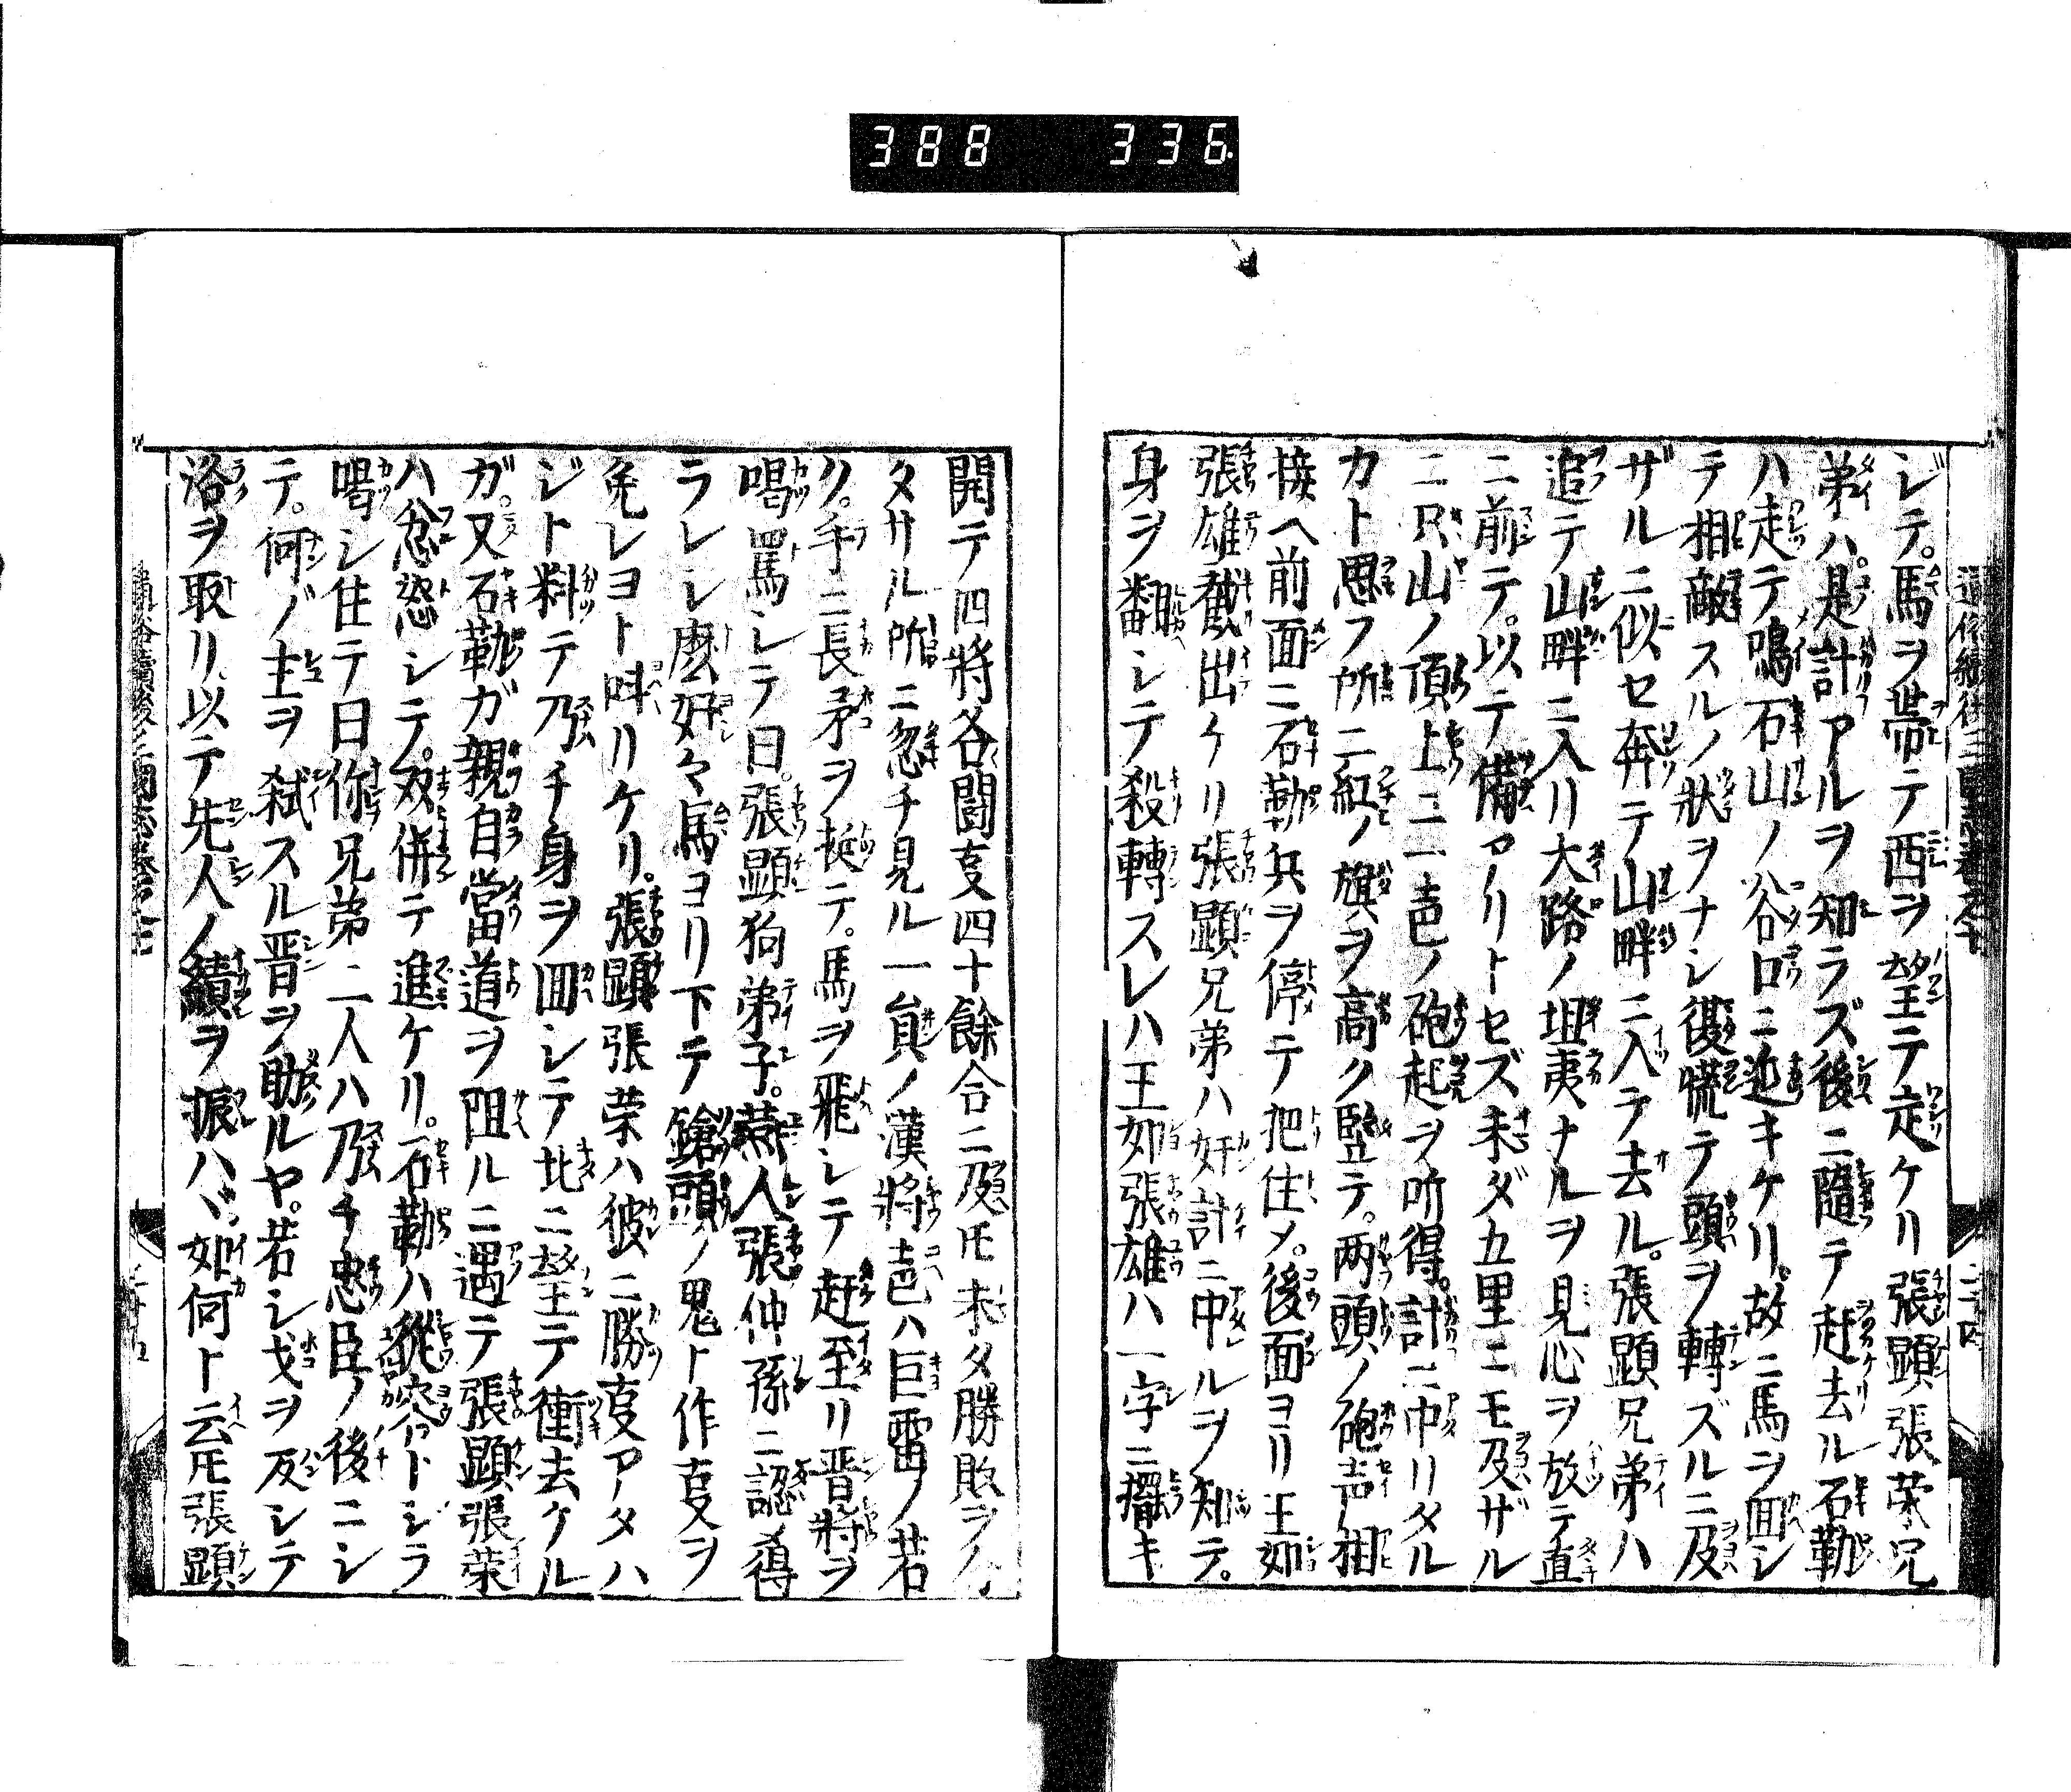 388 336
シテ。馬ヲ帶テ西ヲ望テ走ケリ張顕張荣兄
弟ハ。是計アルヲ知ラズ後ニ隨テ赶去ル石勒
ハ走テ鳴石山ノ谷口ニ近キケリ。故ニ馬ヲ囬シ
テ相敵スルノ狀ヲナシ復慌テ頭ヲ轉ズルニ及
ザルニ似セ奔テ山畔ニ入テ去ル。張顕兄弟ハ
追テ山畔ニ入リ大路ノ坦夷ナルヲ見心ヲ放テ直
ニ前テ。以テ備アリトセズ未ダ五里ニモ及ザル
ニ只山ノ頂上ニ一声ノ砲起ヲ听得。計ニ中リタル
カト思フ所ニ紅ノ旗ヲ高ク竪テ。両頭ノ砲声相
接ヘ前面ニ石勒兵ヲ停テ把住メ。後面ヨリ王如
張雄截出ケリ張顕兄弟ハ奸計ニ中ルヲ知テ。
身ヲ翻シテ殺轉スレハ王如張雄ハ一字ニ擺キ
開テ四將各闘叓四十餘合ニ及ヒ未タ勝敗ヲ分
タサル所ニ忽チ見ル一員ノ漢將声ハ巨雷ノ若
ク。手ニ長矛ヲ挺テ。馬ヲ飛シテ赶至リ晋將ヲ
喝罵シテ曰。張顕狗弟子。燕人張仲孫ニ認得
ラレシ麽好々馬ヨリ下テ鎗頭ノ鬼ト作叓ヲ
免レヨト呌リケリ。張顕張荣ハ彼ニ勝叓アタハ
ジト料テ乃チ身ヲ囬シテ北ニ望テ衝去ケル
ガ。又石勒ガ親自當道ヲ阻ルニ遇テ張顕張荣
ハ忿恣シテ。双併テ進ケリ。石勒ハ從容トシテ
喝シ住テ曰你兄弟二人ハ乃チ忠臣ノ後ニシ
テ。何ノ主ヲ弑スル晋ヲ助ルヤ。若シ戈ヲ反シテ
洛ヲ取リ以テ先人ノ績ヲ振ハヾ如何ト云尾張顕